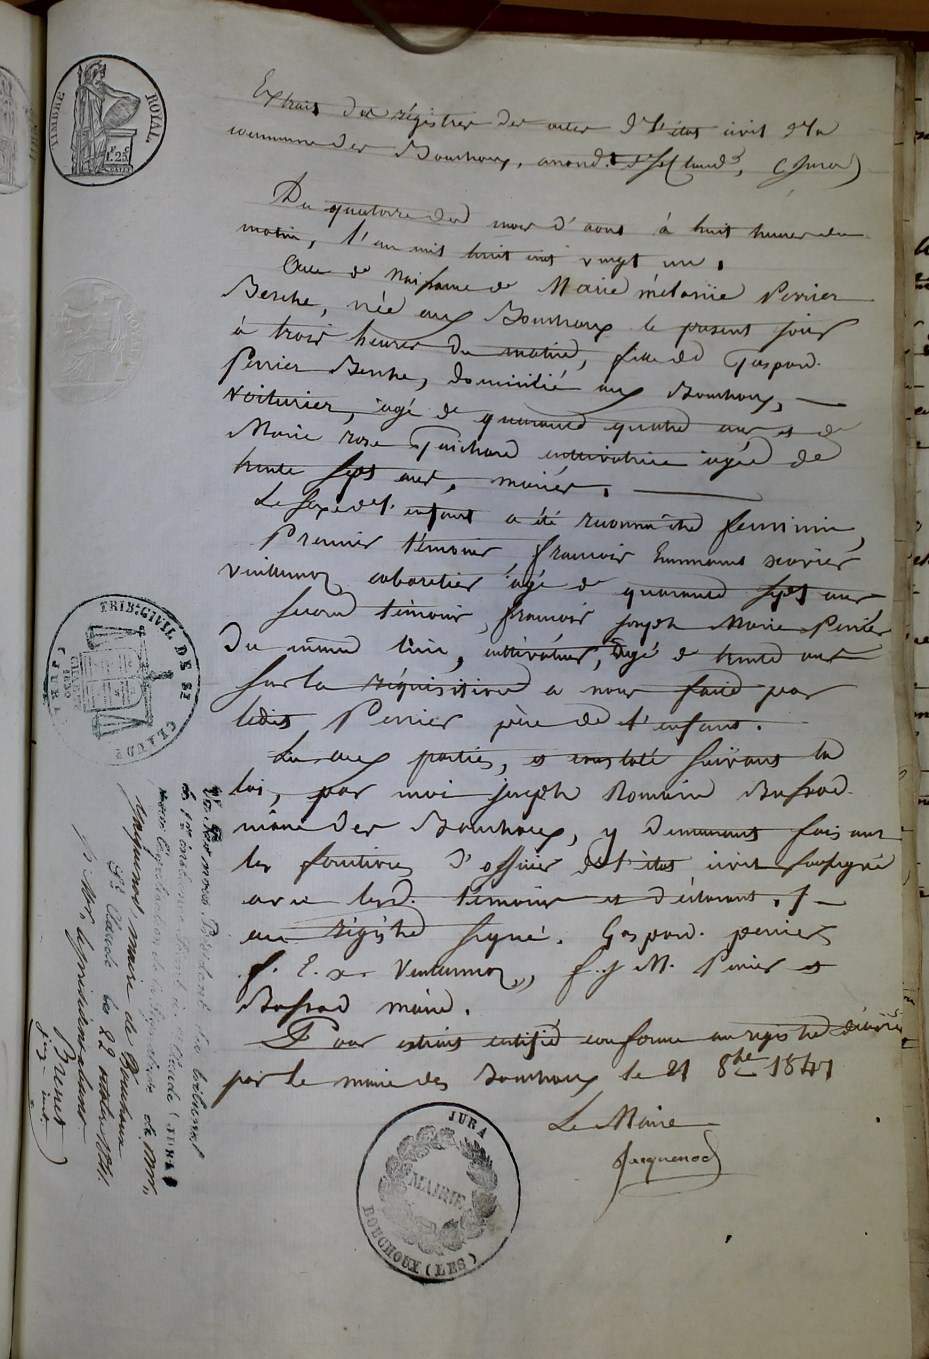 TIMBRE ROYAL
1F. 25C
Extrait des régistres des actes de l'état civil de la
commune des Bouchoux, arrond.t de St Claude, (Jura)
Du quatorze du mois d'aout à huit heures du
matin, l'an mil huit cent vingt un.
Acte de Naissance de Marie mélanie Perrier
Benche, née aux Bouchoux le present jour
à trois heures du matin, fille de Gaspard
Perrier Benche, domicilié aux Bouchoux,
Voiturier, agé de quarante quatre ans et de
Marie rose Guichard cultivatrice agée de
trente sept ans, mariés.
Le sexe de l'enfant a été reconnu être feminin,
Premier témoin françois Emmanuel xavier
Vuillermoz cabaretier agé de quarante sept ans
second témoin, françois joseph Marie Perrier
du même lieu, cultivateur, agé de trente ans
sur la réquisition a nous faite par
ledit Perrier père de l'enfant.
Lu aux parties, et constaté suivant la
loi, par moi joseph Romain
maire des Bouchoux, y demeurant faisant
les fonctions d'officier de l'état civil soussigné
avec lesd. témoins et déclarant.
au régistre signé. Gaspard perrier
f. E. x. Vuillermoz, f. j M. Perrier et
maire.
Pour extrait certifié conforme au registre délivré
par le maire des Bouchoux le 21 8bre 1841
Le Maire
Jacquenod
JURA
MAIRIE
BOUCHOUX (LES)
TRIB: CIVIL DE ST CLAUDE
JURA
1830
Vu par nous Président du tribunal
de 1ere instance séant à St Claude (JURA)
pour légalisation de la signature de Mr.
Jacquenod, maire de Bouchoux
St Claude le 22 octobre 1841.
p. Mr. le président absent
Brenet
juge